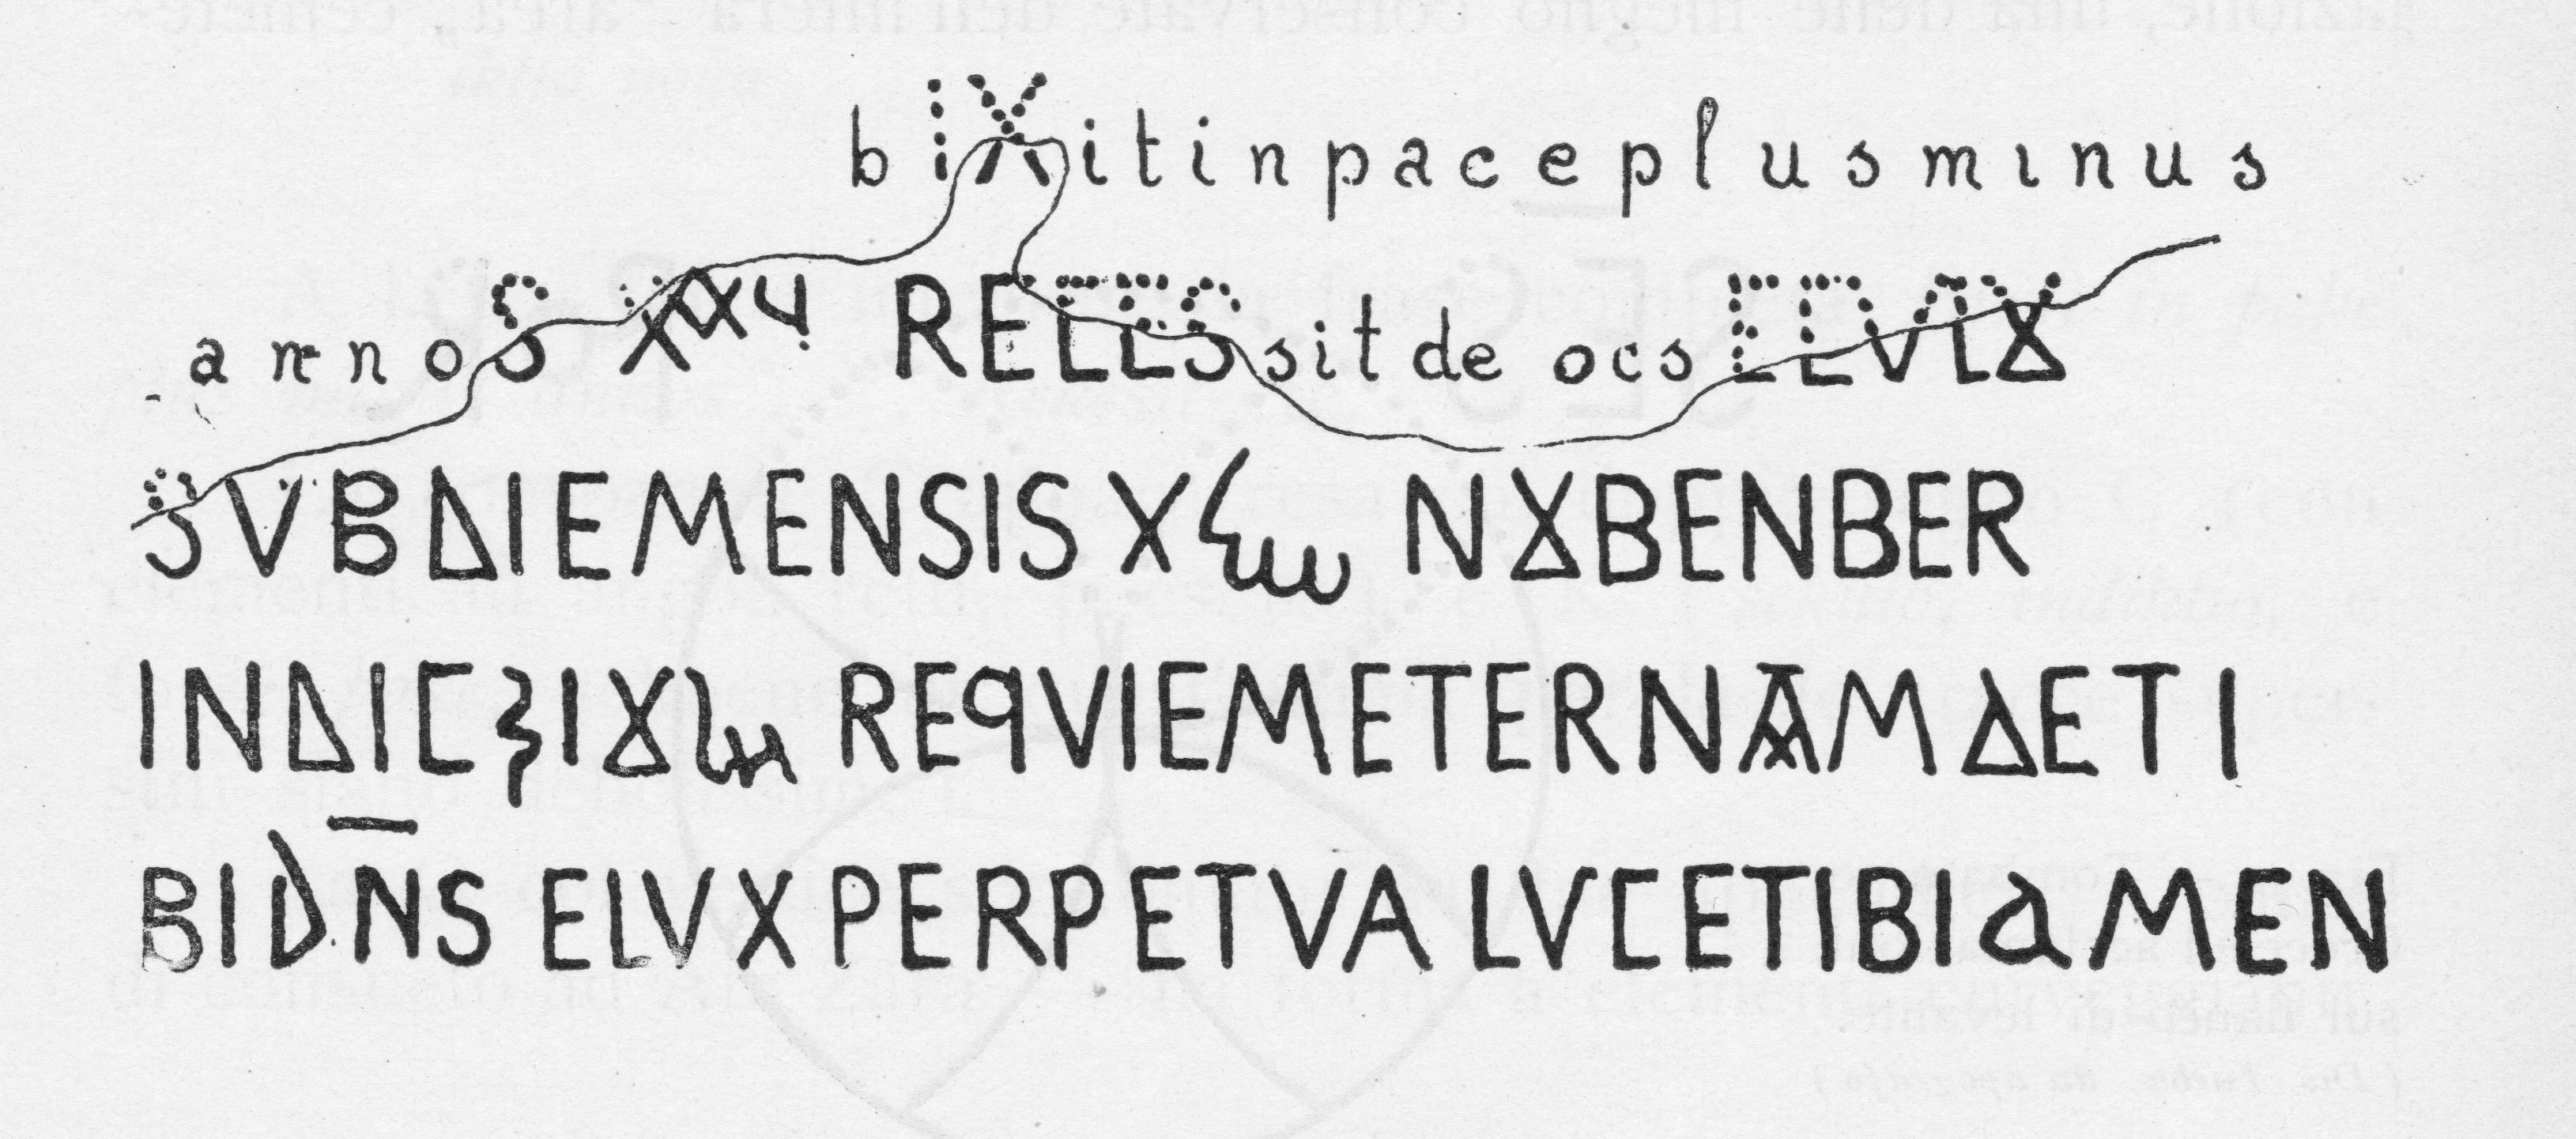 biXitinpaceplusminus
annoS XXV RECESsitde ocsECVLO
SVBDIEMENSIS X NOBENBER
INDIC IO REQVIEMETERNAMDETI
BI DNS ELVX PERPETVA LVCETIBI aMEN